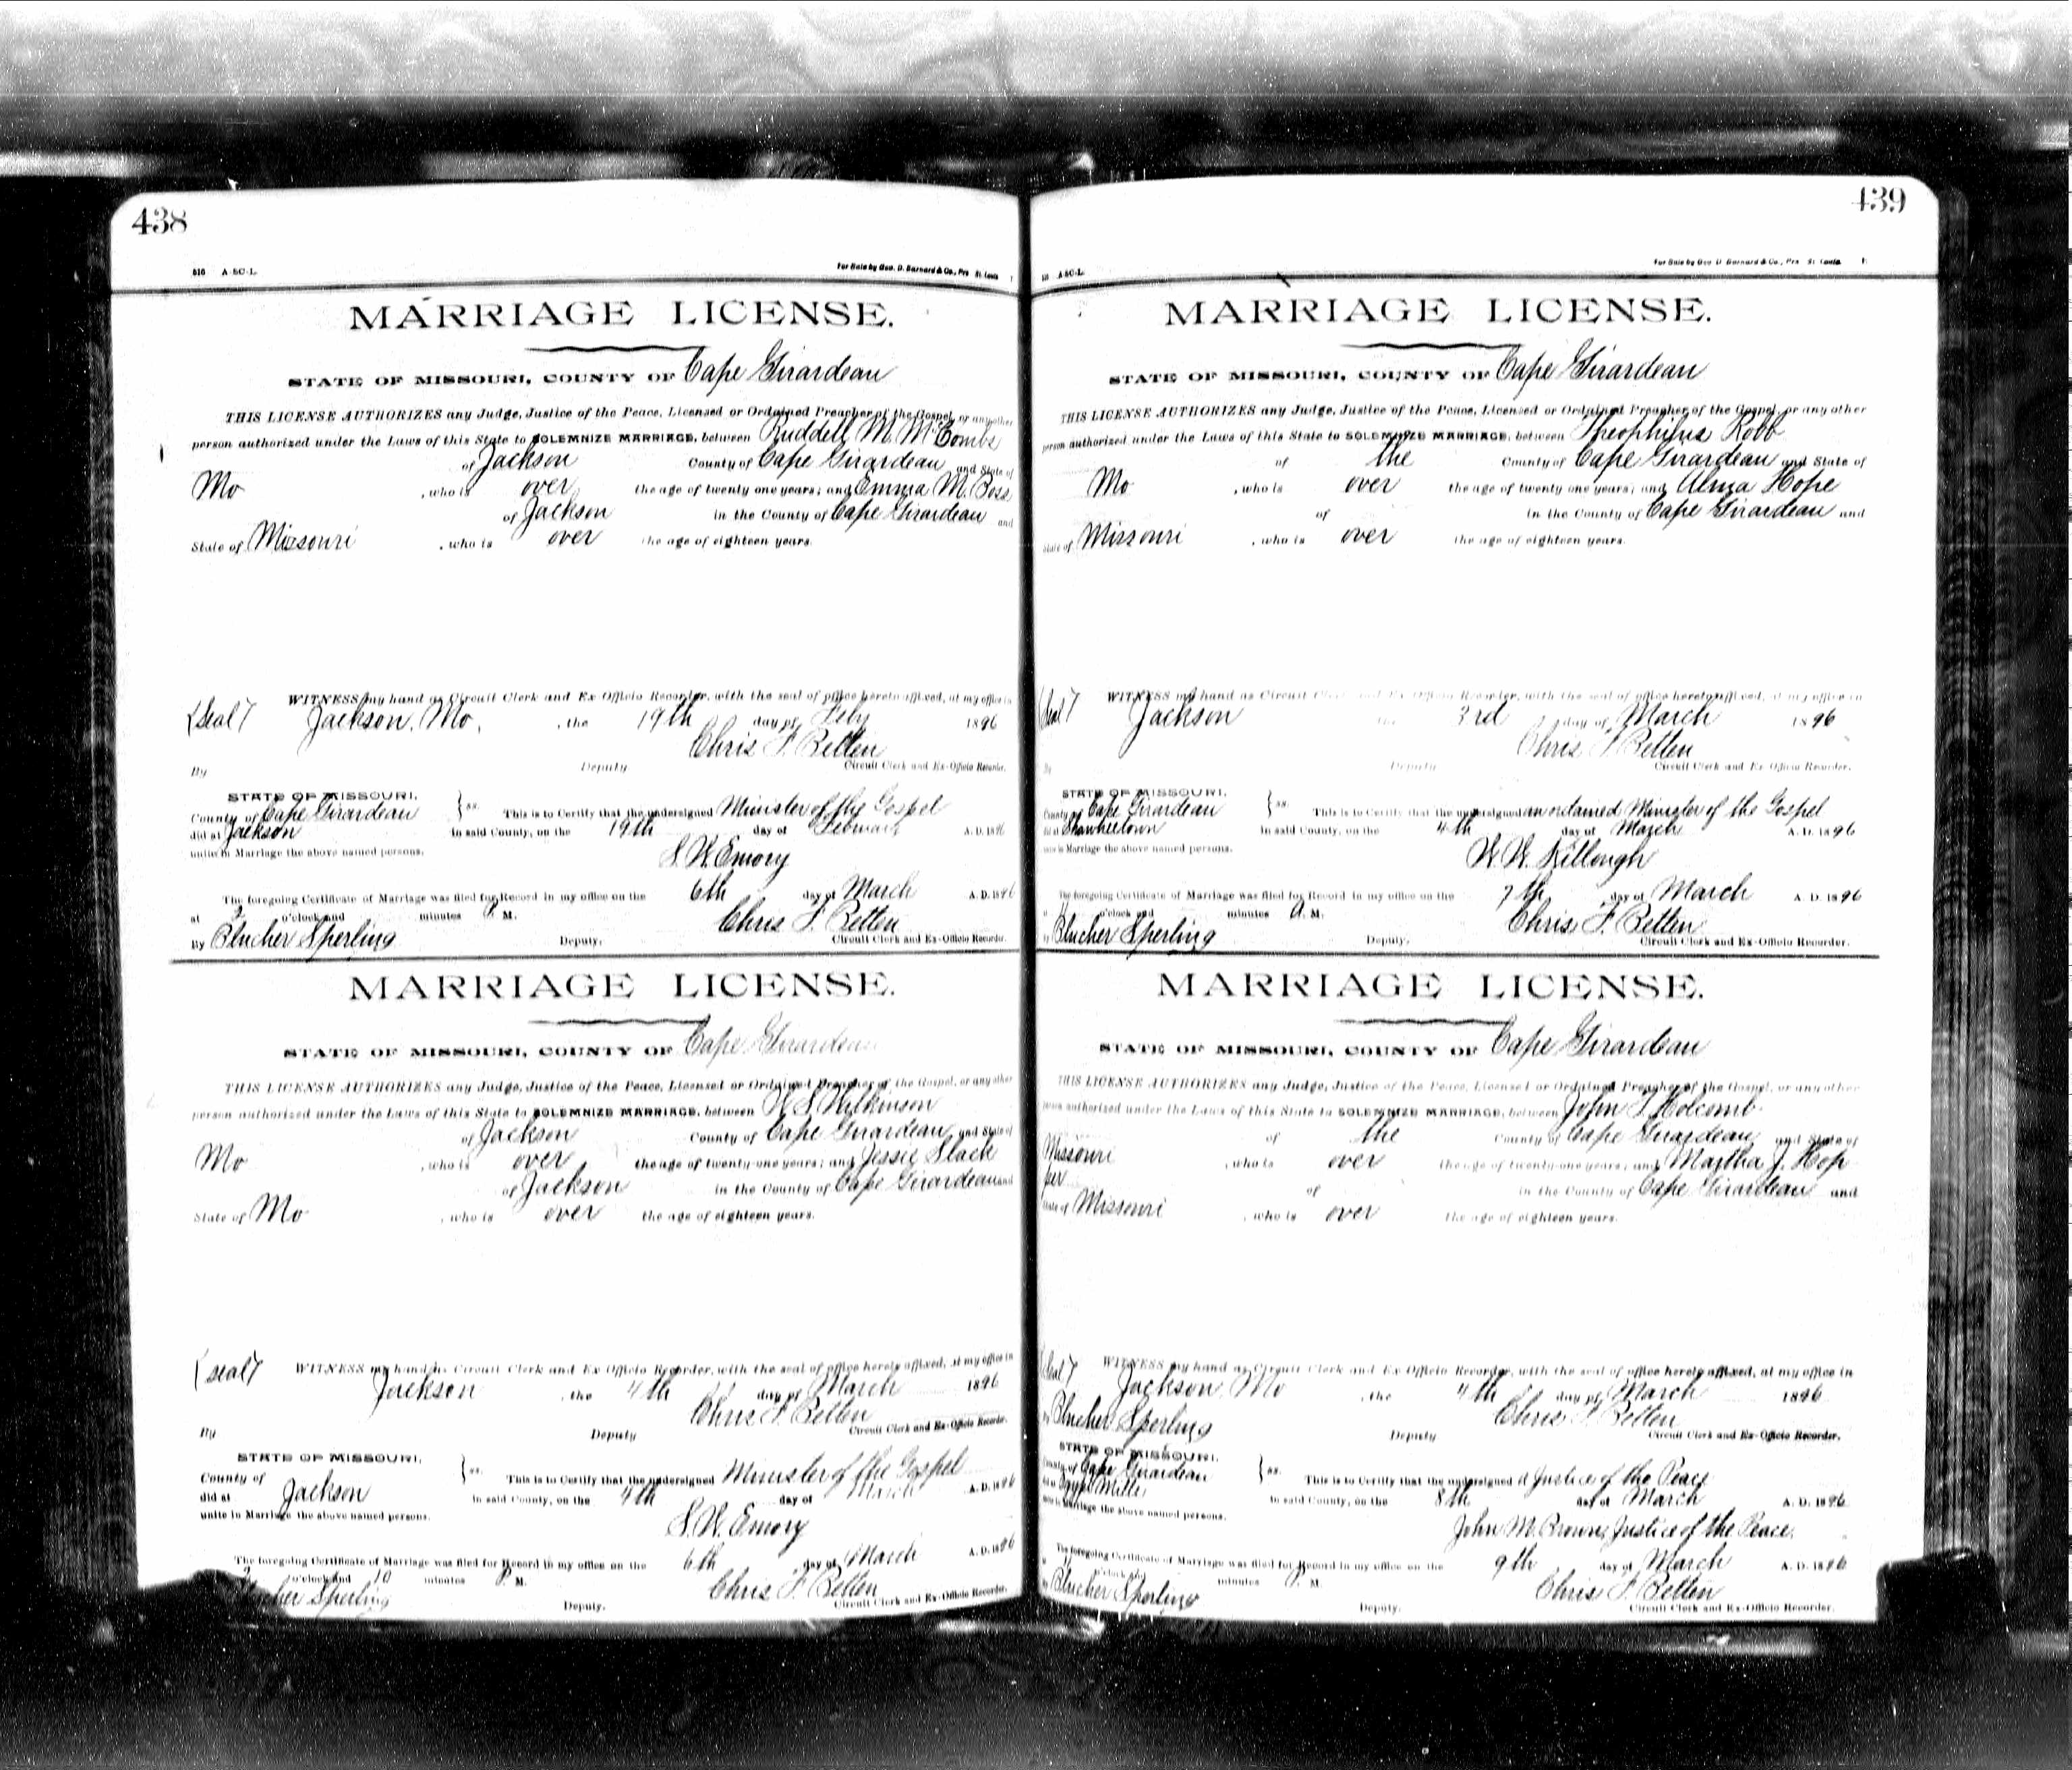 438
516 A-SC-L.
For Sale by Geo. D. Barnard & Co., Prs St. Louis
MARRIAGE LICENSE.
STATE OF MISSOURI, COUNTY OF Cape Girardeau
THIS LICENSE AUTHORIZES any Judge, Justice of the Peace, Licensed or Ordained Preacher of the Gospel, or any other
person authorized under the Laws of this State to SOLEMNIZE MARRIAGE, between Ruddell M. McCombs
of Jackson County of Cape Girardeau and State of
Mo , who is over the age of twenty one years; and Emma M. Ross
of Jackson in the County of Cape Girardeau and
State of Missouri , who is over the age of eighteen years.
WITNESS my hand as Circuit Clerk and Ex Officio Recorder, with the seal of office hereto affixed, at my office in
(Seal) Jackson, Mo. , the 19th day of Feby 1896
Chris F. Betten
By Deputy Circuit Clerk and Ex-Officio Recorder.
STATE OF MISSOURI,
County of Cape Girardeau } ss. This is to Certify that the undersigned Minister of the Gospel
did at Jackson in said County, on the 19th day of February A. D. 1896
unite in Marriage the above named persons.
S. W. Emory
The foregoing Certificate of Marriage was filed for Record in my office on the 6th day of March A. D. 1896
at 2 o'clock and minutes P. M. Chris F. Betten
By Blucher Sperling Deputy. Circuit Clerk and Ex-Officio Recorder.
MARRIAGE LICENSE.
STATE OF MISSOURI, COUNTY OF Cape Girardeau
THIS LICENSE AUTHORIZES any Judge, Justice of the Peace, Licensed or Ordained Preacher of the Gospel, or any other
person authorized under the Laws of this State to SOLEMNIZE MARRIAGE, between W S Wilkinson
of Jackson County of Cape Girardeau and State of
Mo , who is over the age of twenty-one years; and Jessie Slack
of Jackson in the County of Cape Girardeau and
State of Mo , who is over the age of eighteen years.
(seal) WITNESS my hand as Circuit Clerk and Ex Officio Recorder, with the seal of office hereto affixed, at my office in
Jackson , the 4th day of March 1896
Chris F. Betten
By Deputy Circuit Clerk and Ex-Officio Recorder.
STATE OF MISSOURI,
County of } ss. This is to Certify that the undersigned Minister of the Gospel
did at Jackson in said County, on the 4th day of March A. D. 1896
unite in Marriage the above named persons.
S. W. Emory
The foregoing Certificate of Marriage was filed for Record in my office on the 6th day of March A. D. 1896
2 o'clock and 10 minutes P. M. Chris F. Betten
Blucher Sperling Deputy. Circuit Clerk and Ex-Officio Recorder.
439
A-SC-L.
For Sale by Geo. D. Barnard & Co., Prs St. Louis.
MARRIAGE LICENSE.
STATE OF MISSOURI, COUNTY OF Cape Girardeau
THIS LICENSE AUTHORIZES any Judge, Justice of the Peace, Licensed or Ordained Preacher of the Gospel, or any other
person authorized under the Laws of this State to SOLEMNIZE MARRIAGE, between Theophilus Robb
of the County of Cape Girardeau and State of
Mo , who is over the age of twenty one years; and Alma Hope
of in the County of Cape Girardeau and
State of Missouri , who is over the age of eighteen years.
WITNESS my hand as Circuit Clerk and Ex Officio Recorder, with the seal of office hereto affixed, at my office in
(Seal) Jackson the 3rd day of March 1896
Chris F Betten
By Deputy Circuit Clerk and Ex Officio Recorder.
STATE OF MISSOURI,
County of Cape Girardeau } ss. This is to Certify that the undersigned an ordained Minister of the Gospel
did at Shawneetown in said County, on the 4th day of March A. D. 1896
unite in Marriage the above named persons.
W. W. Killough
The foregoing Certificate of Marriage was filed for Record in my office on the 7th day of March A. D. 1896
o'clock and minutes A. M. Chris F. Betten
By Blucher Sperling Deputy. Circuit Clerk and Ex-Officio Recorder.
MARRIAGE LICENSE.
STATE OF MISSOURI, COUNTY OF Cape Girardeau
THIS LICENSE AUTHORIZES any Judge, Justice of the Peace, Licensed or Ordained Preacher of the Gospel, or any other
person authorized under the Laws of this State to SOLEMNIZE MARRIAGE, between John T. Holcomb
of the County of Cape Girardeau and State of
Missouri , who is over the age of twenty-one years; and Martha J. Hop
per of in the County of Cape Girardeau and
State of Missouri , who is over the age of eighteen years.
(Seal) WITNESS my hand as Circuit Clerk and Ex Officio Recorder, with the seal of office hereto affixed, at my office in
Jackson Mo , the 4th day of March 1896
Chris F Betten
By Blucher Sperling Deputy Circuit Clerk and Ex-Officio Recorder.
STATE OF MISSOURI,
County of Cape Girardeau } ss. This is to Certify that the undersigned a Justice of the Peace
did at Mills in said County, on the 8th day of March A. D. 1896
unite in Marriage the above named persons.
John M. Brown, Justice of the Peace.
The foregoing Certificate of Marriage was filed for Record in my office on the 9th day of March A. D. 1896
o'clock and minutes P. M. Chris F. Betten
By Blucher Sperling Deputy. Circuit Clerk and Ex-Officio Recorder.